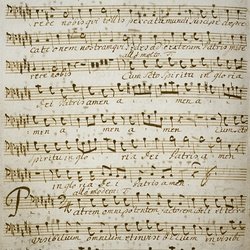 rere nobis qui tollis peccata mundi suscipe depre
cationem nostram qui sedes ad dexteram Patris mise
allo molto
rere nobis Cum Sto Spiritu in gloria
Dei Patris amen a i men a
i men a i men a Cum S
Spiritu in glo ria Dei Patris a men
in gloria Dei Patris amen
allo moder:
Patrem omnipotentem factorem coeli et terrae
visibilium omnium et invisi